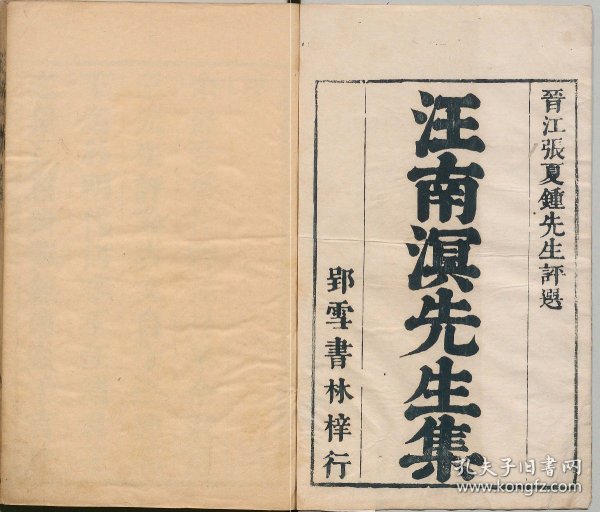 晉江張夏鍾先生評選
汪南溟先生集
郢雪書林梓行
孔夫子旧书网
www.kongfz.com